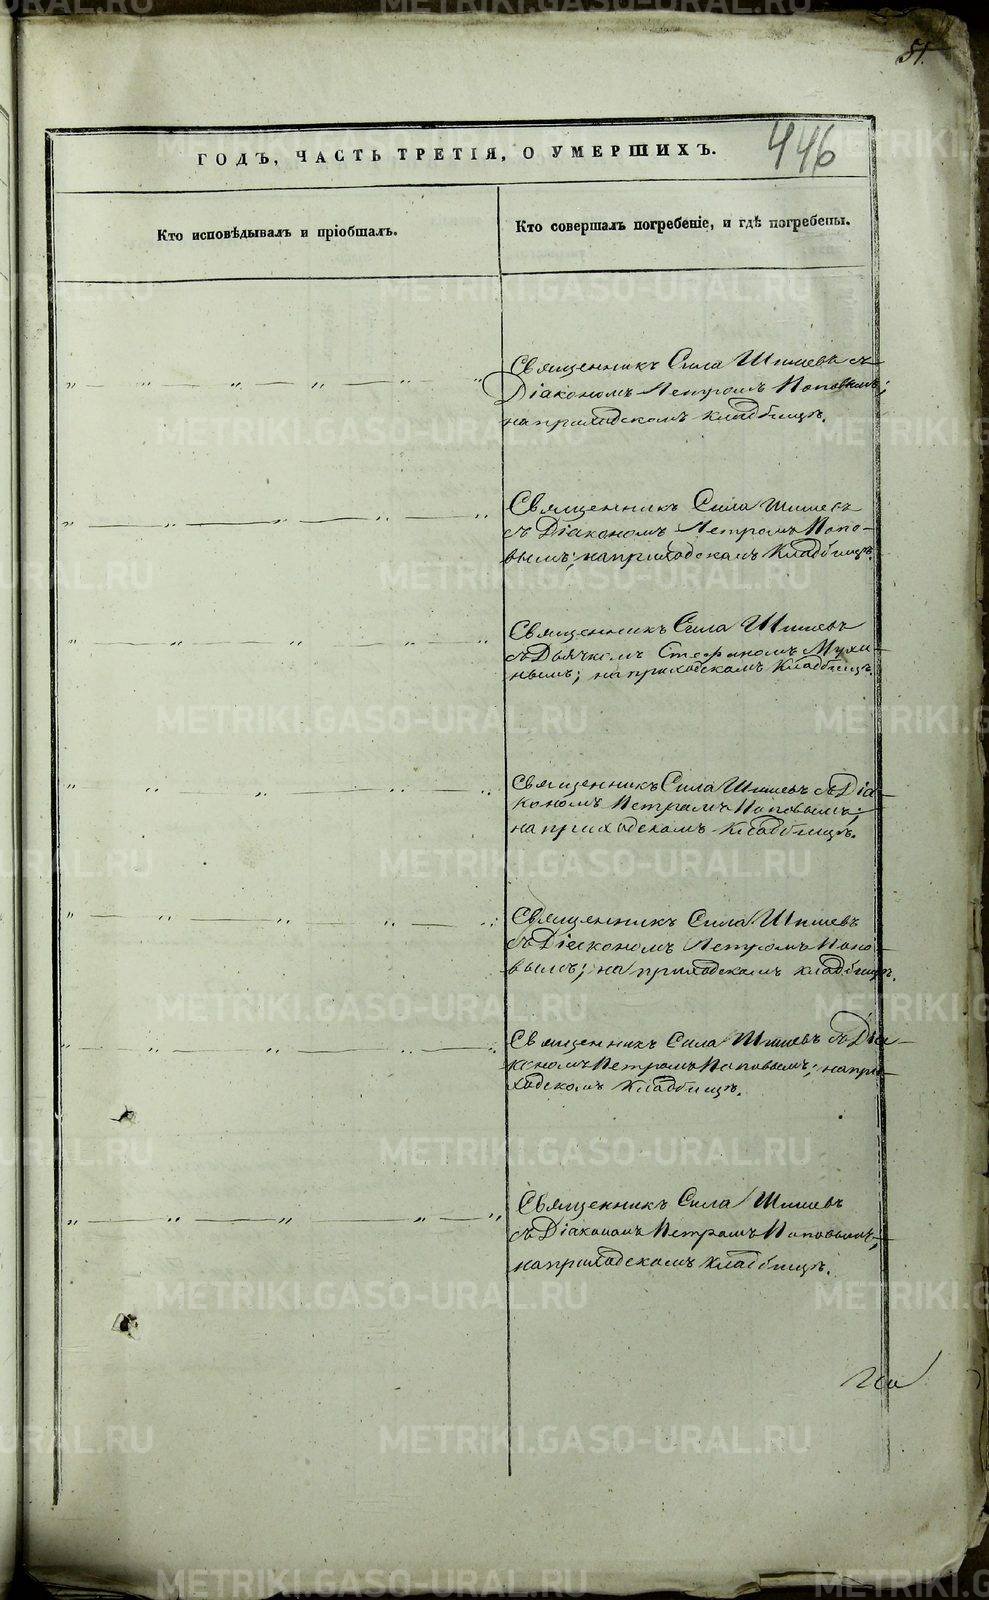 51.
446
ГОДЪ, ЧАСТЬ ТРЕТІЯ, О УМЕРШИХЪ.
Кто исповѣдывалъ и пріобщалъ.
Кто совершалъ погребеніе, и гдѣ погребены.
Священникъ Сила Шишевъ съ
Діакономъ Петромъ Поповымъ;
на приходскомъ кладбищѣ.
Священникъ Сила Шишевъ
съ Діакономъ Петромъ Попо-
вымъ; на приходскомъ кладбищѣ.
Священникъ Сила Шишевъ
съ Дьячкомъ Стефаномъ
нымъ; на приходскомъ кладбищѣ.
Священникъ Сила Шишевъ съ Діа-
кономъ Петромъ Поповымъ;
на приходскомъ кладбищѣ.
Священникъ Сила Шишевъ
съ Діакономъ Петромъ Попо-
вымъ; на приходскомъ кладбищѣ.
Священникъ Сила Шишевъ съ Діа-
кономъ Петромъ Поповымъ; на при-
ходскомъ кладбищѣ.
Священникъ Сила Шишевъ
съ Діакономъ Петромъ Поповымъ;
на приходскомъ кладбищѣ.
METRIKI.GASO-URAL.RU